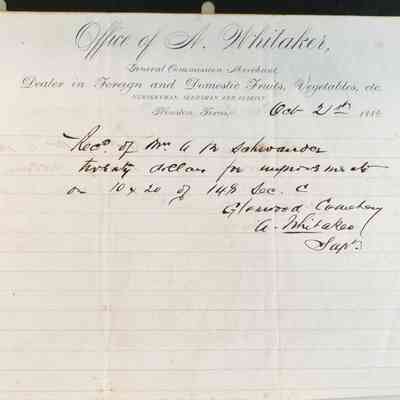 Office of A. Whitaker,
General Commission Merchant,
Dealer in Foreign and Domestic Fruits, Vegetables, etc.
NURSERYMAN, SEEDSMAN AND FLORIST
Houston, Texas, Oct 21st 188
Recd of Mrs A B Schwander
twenty dollars for improvements
on 10 x 20 of 148 Sec. C
Glenwood Cemetery
A. Whitaker
Supt